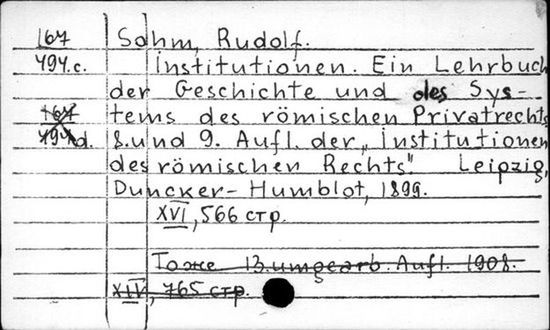 167 Sohm, Rudolf.
494.c. Institutionen. Ein Lehrbuch
der Geschichte und des Sys-
167 tems des römischen Privatrechts
494d. 8. und 9. Aufl. der „Institutionen
des römischen Rechts" Leipzig,
Duncker-Humblot, 1899.
XVI, 566 стр.
Тоже 13. umgearb. Aufl. 1908.
XIV, 765 стр.